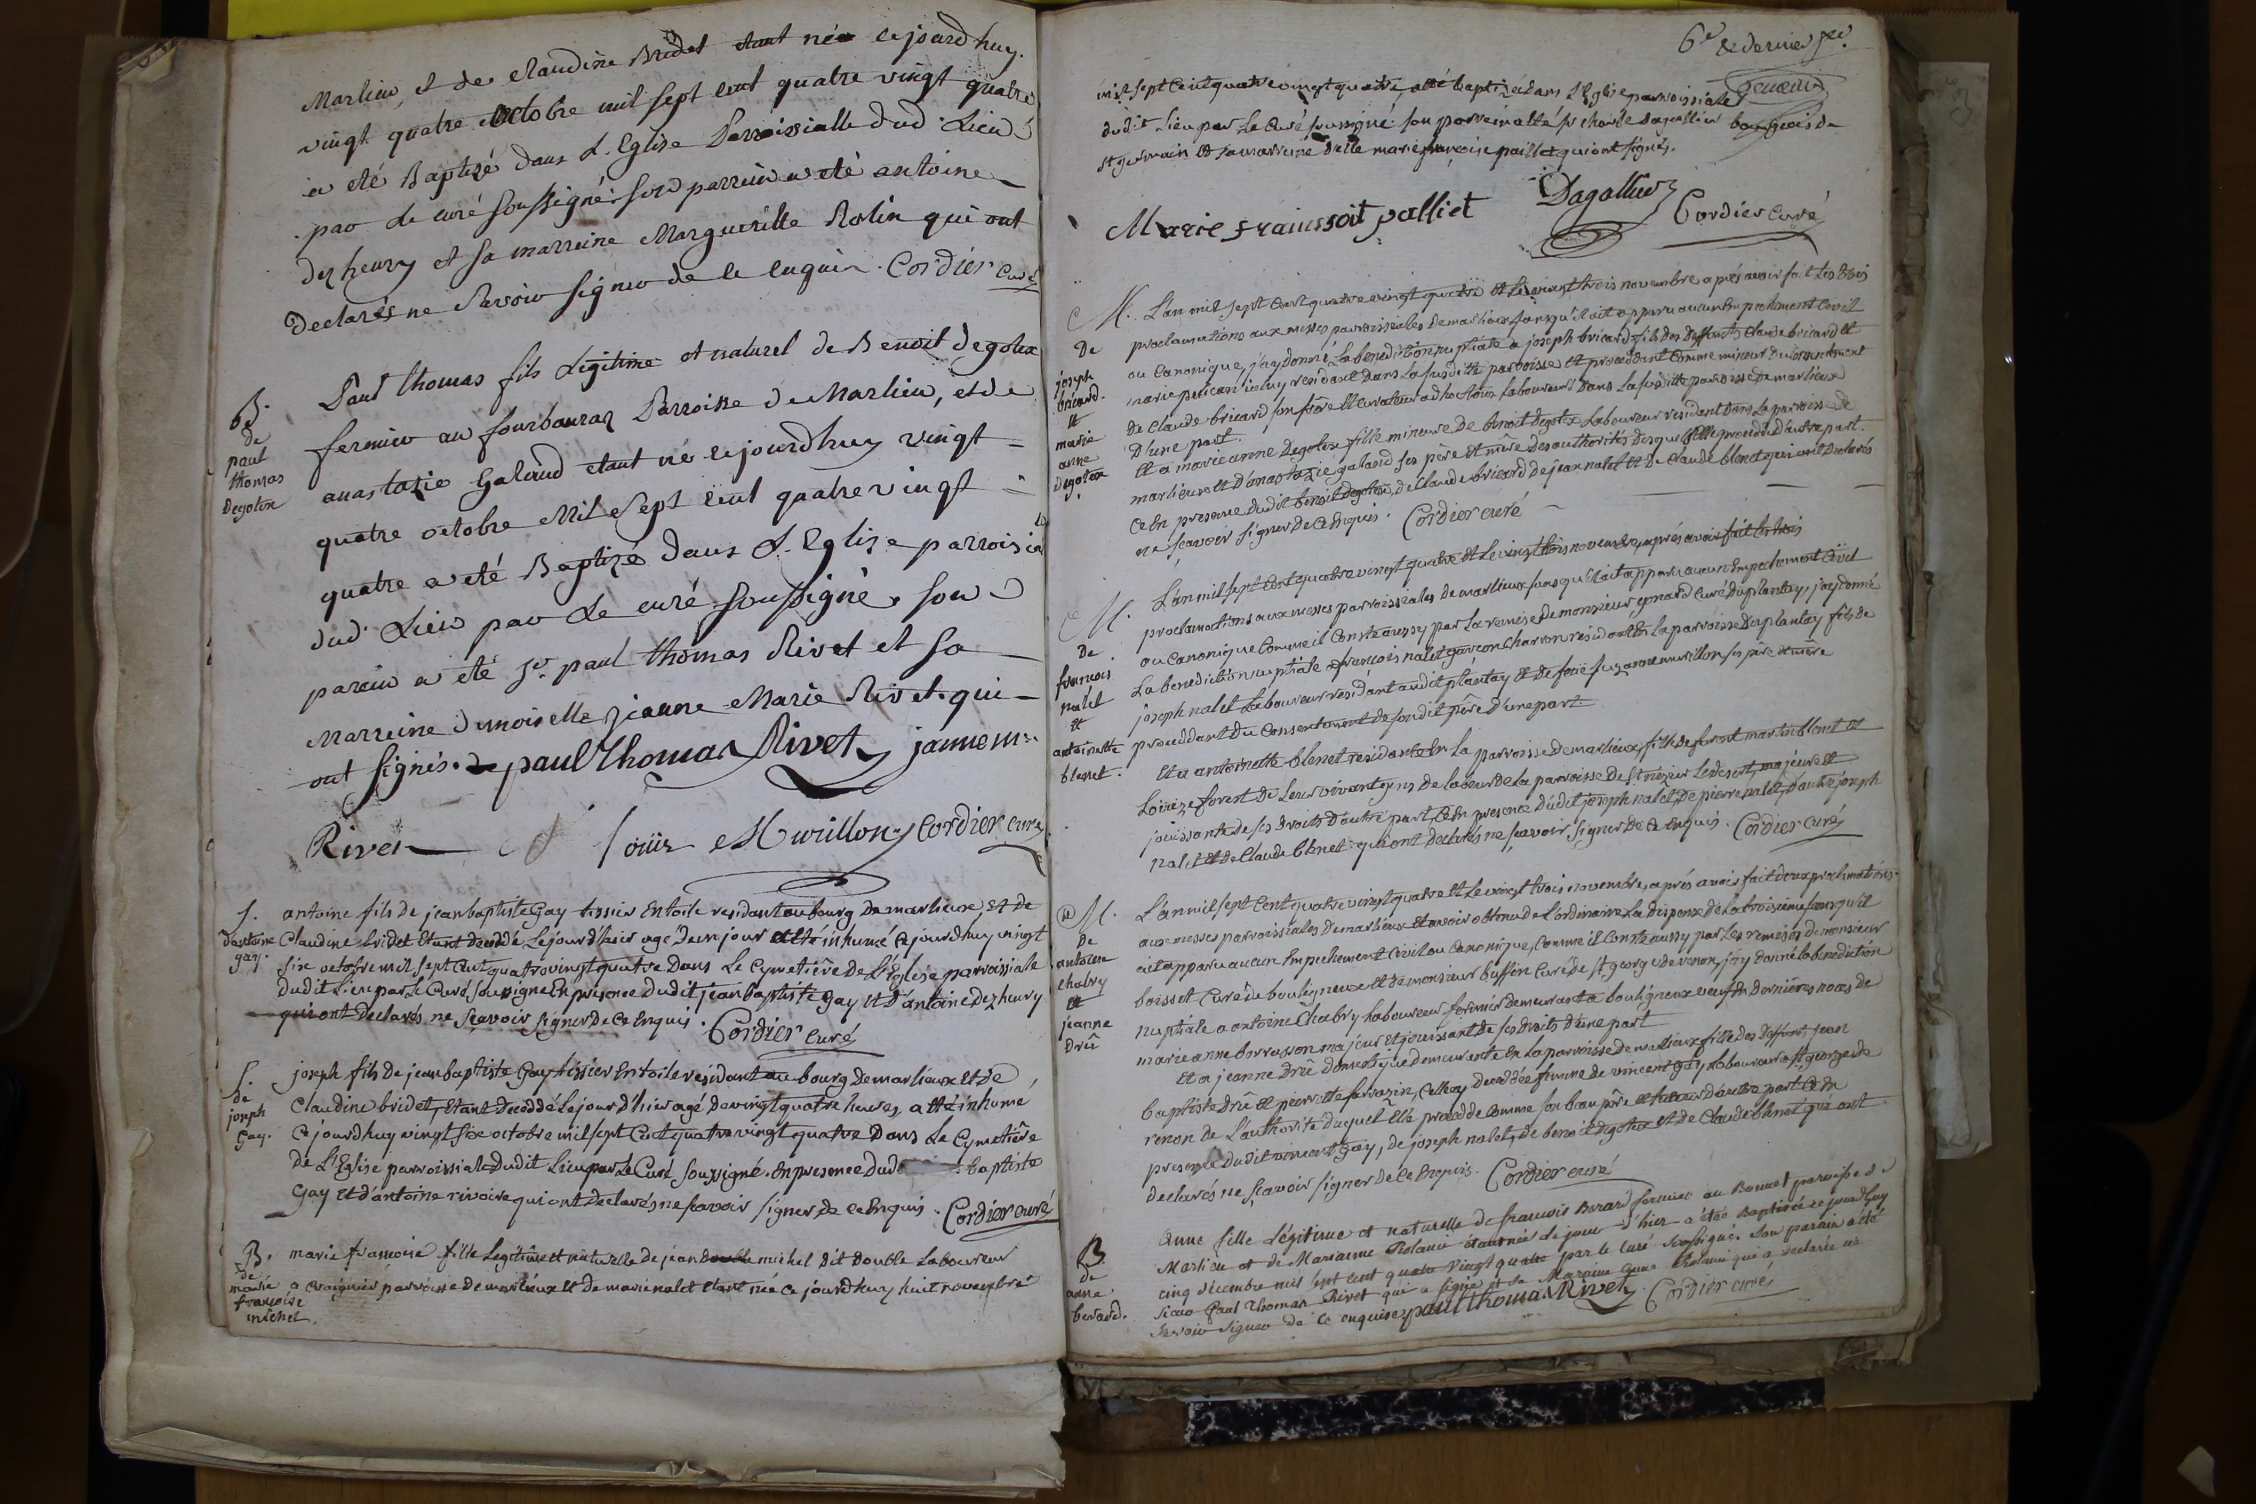 Marlieu, et de Claudine Bridet etant née cejourd huy
vingt quatre octobre mil sept cent quatre vingt quatre
a eté Baptisé dans L'Eglise Parroissialle dud. Lieu
par le curé soussigné son parrein a eté antoine
dezheury et sa marreine Marguerille Rolin qui ont
Declarés ne Savoir signer de ce enquis. Cordier curé
B.
de
paul
thomas
Degolex
Paul thomas fils Légitime et naturel de Benoit degolex
fermier au fourbauraz Parroisse de Marlieu, et de
anastazie Galand etant né cejourdhuy vingt
quatre octobre Mil Sept cent quatre vingt
quatre a eté Baptisé dans L'Eglise parroisia
dud. Lieu par Le curé soussigné. son
parein a eté sr. paul thomas Rivet et sa
Marreine demoiselle jeanne Marie Rivet. qui
ont signés. paul Thomas Rivet jannem
Rivet Louis Murillon Cordier curé
S.
d'antoine
gay.
antoine fils de jean baptiste Gay tissier En toile residant au bourg de marlieux, et de
Claudine bridet Etant decédé Le jour d'hier agé de un jour a Eté inhumé Ce jourd huy vingt
six octobre mil sept Cent quatre vingt quatre Dans Le Cymetiêre de L'Eglise parroissiale
dudit Lieu par Le Curé, soussigné En présence dudit jean baptiste Gay Et d'antoine dezheury
qui ont declarés ne sçavoir signer de Ce Enquis. Cordier curé
S.
de
joseph
Gay.
joseph fils de jean baptiste Gay tissier En toile residant au bourg de marlieux Et de
Claudine bridet, Etant decédé Le jour d'hier agé de vingt quatre heures a Eté inhumé
Ce jourd huy vingt six octobre mil sept Cent quatre vingt quatre Dans Le Cymetiêre
de L'Eglise parroissiale dudit Lieu par Le Curé soussigné. En presence dud baptiste
Gay Et d'antoine rivoire qui ont declarés ne sçavoir signer de ce Enquis. Cordier curé
B.
de
marie
françoise
michel.
marie françoise fille Legitime et naturelle de jean michel dit double Laboureur
a Craignier parroisse de marlieux Et de marie nalet Etant née Ce jourd huy huit novembre
6e et dernier
mil sept Cent quatre vingt quatre, a Eté baptizée dans L'Eglise parroissiale
dudit Lieu par Le Curé soussigné son parrein a Eté sr charle dagallier bourgeois de
st germain Et sa marreine Delle marie françoise paillet qui ont signés.
Marie frainssoit palliet Dagallier Cordier curé
M.
De
joseph
bricard.
Et
marie
anne
Degolex
L'an mil sept Cent quatre vingt quatre Et Le vingt trois novembre après avoir fait Les trois
proclamations aux messes parroissiales de marlieux sans qu'il ait apparu aucun Empechement Civil
ou Canonique, j'ay donné La benediction nuptiale a joseph bricard fils des deffunts Claude bricard Et
marie pelican icelluy residant dans La susditte parroisse Et procedant Comme mineur du Consentement
de Claude bricard son frêre Et Curateur Laboureur dans La susditte parroisse de marlieux
D'une part.
Et a marie anne Degolex fille mineure de benoit degolex Laboureur residant dans La parroisse de
marlieux Et d'anastazie galand ses père Et mêre des authorités desquels Elle procede d'autre part.
Ce En presence dudit benoit degolex, de Claude bricard de jean nalet Et de Claude blenet qui ont Declarés
ne sçavoir signer de Ce Enquis. Cordier curé
M.
De
francois
nalet
Et
antoinette
blenet.
L'an mil sept Cent quatre vingt quatre Et Le vingt trois novembre, après avoir fait Les trois
proclamations aux messes parroissiales de marlieux sans qu'il ait apparu aucun Empechement Civil
ou Canonique Comme il Conste aussy par La remise de monsieur curé du plantay, j'ay donné
La benediction nuptiale a francois nalet garçon Charron residant En La parroisse du plantay fils de
joseph nalet Laboureur residant audit plantay Et de feue suzanne murillon ses père Et mère
procedant du Consentement de son dit père d'une part
Et a antoinette blenet residante En La parroisse de marlieux fille de furent martin blenet Et
Loinze forest de Leurs vivant gens de labeur de la parroisse de st nizier Le desert, majeure Et
jouissante de ses droits d'autre part, Ce En presence dudit joseph nalet, de pierre nalet, d'autre joseph
nalet Et de Claude blenet qui ont declarés ne sçavoir signer de Ce Enquis. Cordier curé
M.
De
antoine
chabry
Et
jeanne
Drû
L'an mil sept Cent quatre vingt quatre Et Le vingt trois novembre, après avoir fait deux proclamations
aux messes parroissiales de marlieux Et avoir obtenu de L'ordinaire La dispense de La troisieme sans qu'il
ait apparu aucun Empechement Civil ou Canonique, Comme il Conste aussy par Les remises de monsieur
boisset Curé de bouligneux Et de monsieur buffin Curé de st george de renon, j'ay donné la benediction
nuptiale a antoine Chabry Laboureur fermier demeurant a bouligneux veuf En dernières noces de
marie anne borrasson majeur Et jouissant de ses droits d'une part
Et a jeanne Drû domestique demeurante En La parroisse de marlieux fille des deffunt jean
baptiste Drû Et pierrette sarrazin, Celle cy decedée femme de vincent Gay Laboureur a st george de
renon de L'authorité duquel Elle procedde Comme son beau père Et tuteur d'autre part, Ce En
presence dudit vincent Gay, de joseph nalet, de benoit degolex et de Claude blenet qui ont
declarés ne sçavoir signer de Ce Enquis. Cordier curé
B
de
anne
berard.
Anne fille Légitime et naturelle de francois Berard fermier au Bonnet paroisse de
Marlieu et de Marianne Rolanin étant née le jour d'hier a étée Baptisée ce jourd'huy
cinq décembre mil sept cent quatre vingt quatre par le curé soussigné. Son parain a été
sieur Paul Thomas Rivet qui a signé et sa Maraine Anne qui a declarée ne
Savoir signer de ce enquise paul thomas Rivet Cordier curé